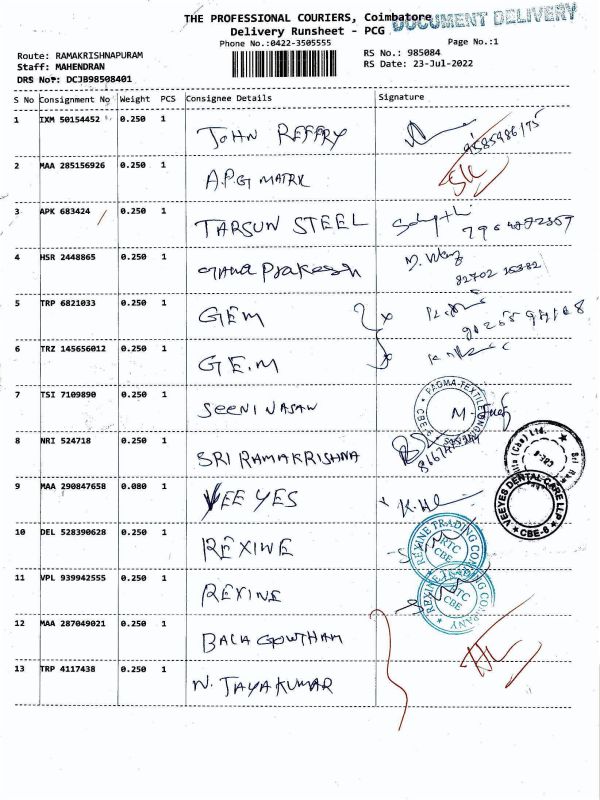 THE PROFESSIONAL COURIERS, Coimbatore
DOCUMENT DELIVERY
Delivery Runsheet - PCG
Phone No.:0422-3505555
Page No.:1
Route: RAMAKRISHNAPURAM
RS No.: 985084
Staff: MAHENDRAN
RS Date: 23-Jul-2022
DRS No*: DCJB98508401
S No Consignment No Weight PCS Consignee Details Signature
1 IXM 50154452 0.250 1 JOHN REFFRY
9585986175
2 MAA 285156926 0.250 1 A.P.G MATRX
3 APK 683424 0.250 1 TARSUN STEEL
4 HSR 2448865 0.250 1 Prakash
82702
5 TRP 6821033 0.250 1 GEM
6 TRZ 145656012 0.250 1 GEM
7 TSI 7109890 0.250 1 SEENIVASAN
PAGMA-TEXTILE CBE
8 NRI 524718 0.250 1 SRI RAMAKRISHNA
(Cbe) Ltd.
9 MAA 290847658 0.080 1 VEE YES
VEEYES DENTAL CARE LLP CBE-6
10 DEL 528390628 0.250 1 REXINE
REXINE TRADING COMPANY RTC CBE
11 VPL 939942555 0.250 1 REXINE
REXINE TRADING COMPANY RTC CBE
12 MAA 287049021 0.250 1 BALA GOWTHAM
13 TRP 4117438 0.250 1 N. JAYAKUMAR